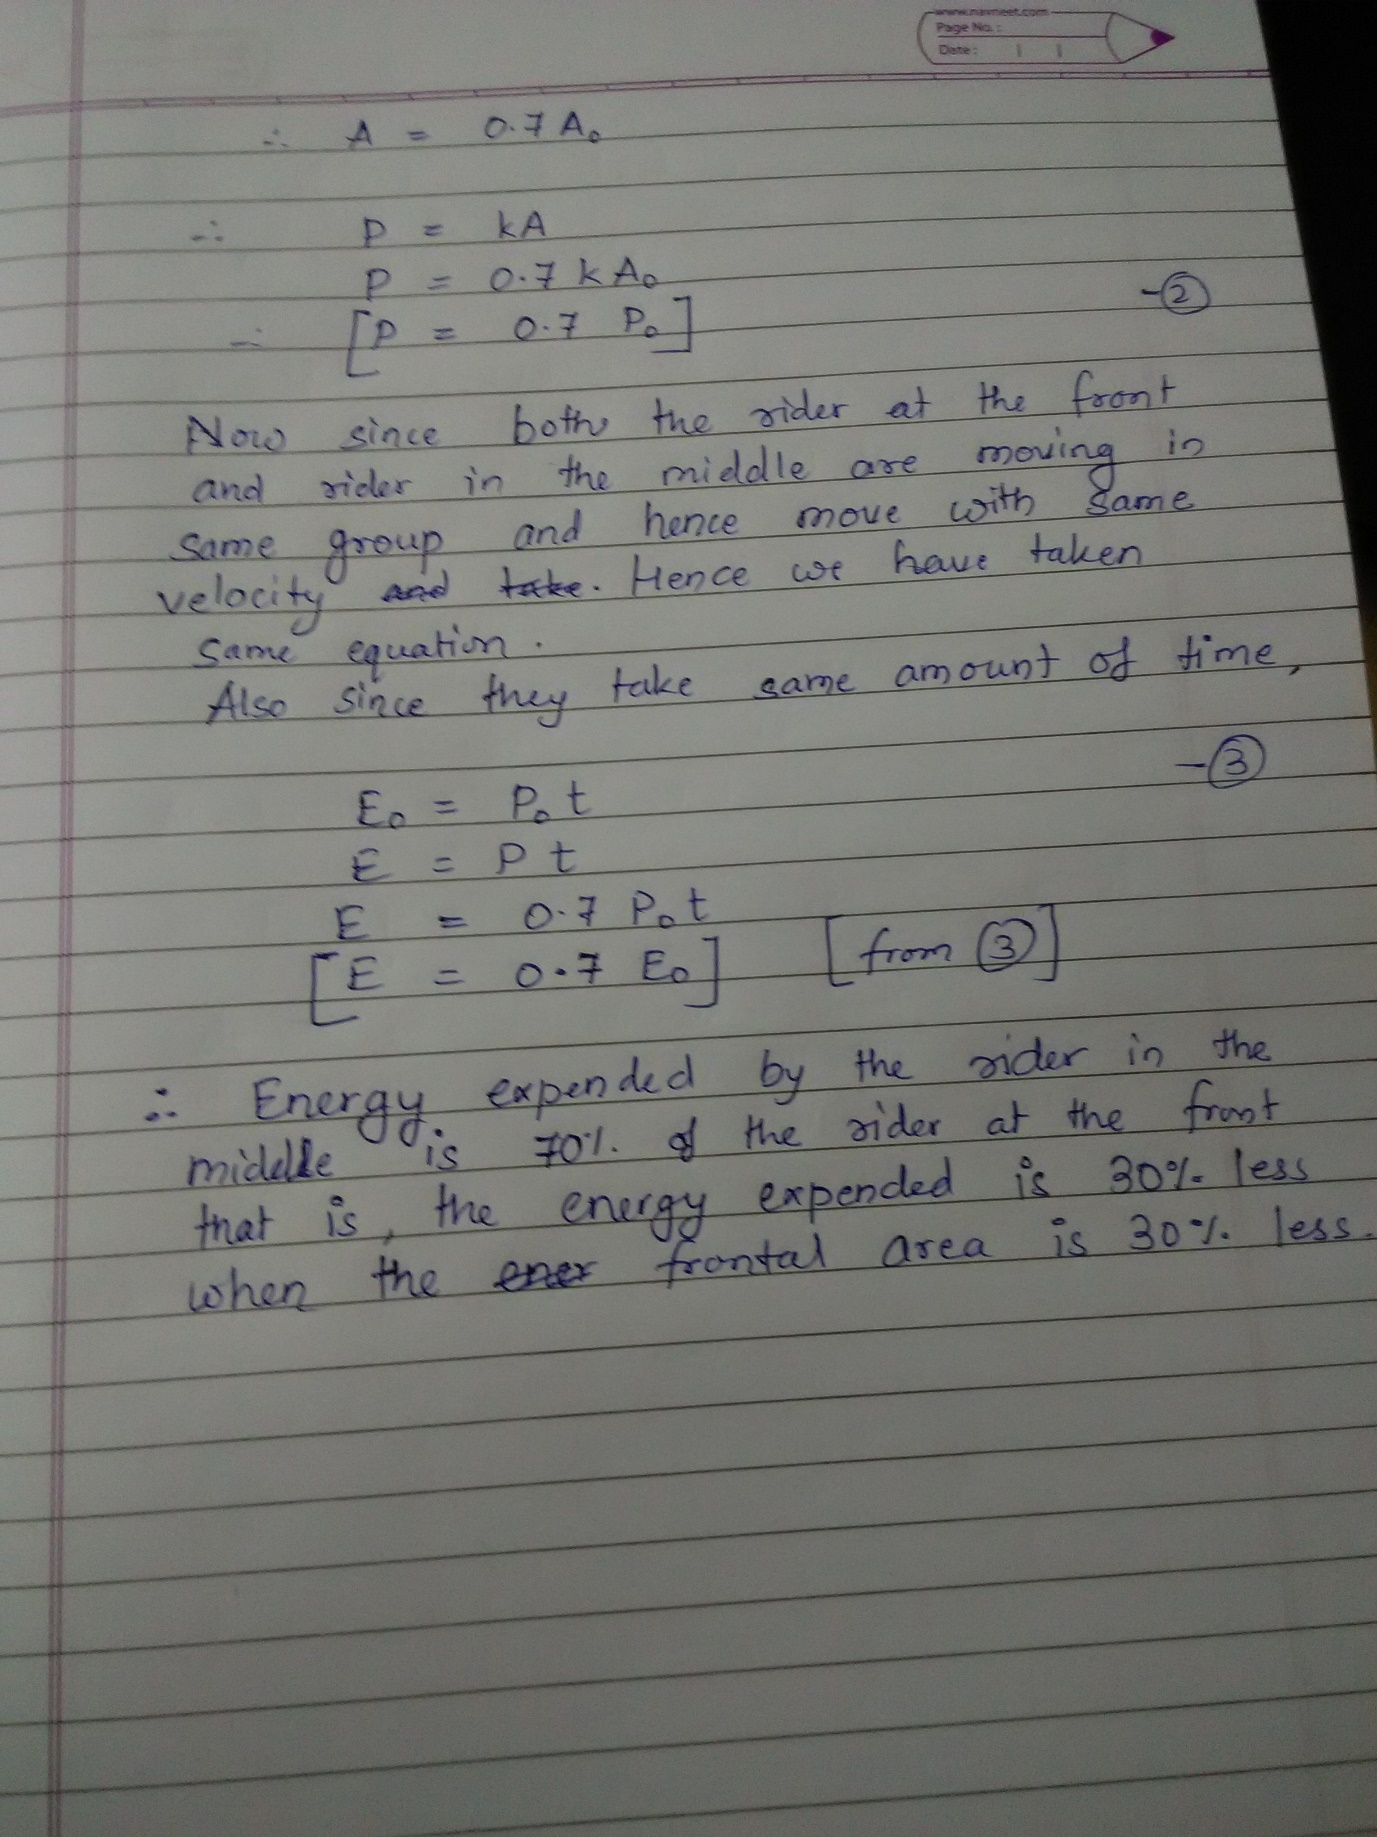 www.navneet.com
Page No.:
Date: | |
∴ A = 0.7 A₀
∴ P = kA
P = 0.7 k A₀
∴ [P = 0.7 P₀] -②
Now since both the rider at the front
and rider in the middle are moving in
same group and hence move with same
velocity and take. Hence we have taken
same equation.
Also since they take same amount of time,
E₀ = P₀ t -③
E = P t
E = 0.7 P₀ t
[E = 0.7 E₀] [from ③]
∴ Energy expended by the rider in the
middle is 70%. of the rider at the front
that is, the energy expended is 30% less
when the ener frontal area is 30%. less.